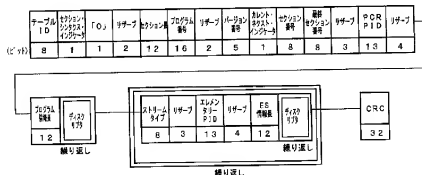 テーブル
ID
セクション・
シンタクス・
インジケータ
「0」
リザーブ
セクション長
プログラム
番号
リザーブ
バージョン
番号
カレント・
ネクスト・
インジケータ
セクション
番号
最終
セクション
番号
リザーブ
PCR
PID
リザーブ
(ビット)
8
1
1
2
12
16
2
5
1
8
8
3
13
4
プログラム
情報長
ディスク
リプタ
12
繰り返し
ストリーム
タイプ
リザーブ
エレメン
タリー
PID
リザーブ
ES
情報長
ディスク
リプタ
8
3
13
4
12
繰り返し
繰り返し
CRC
32